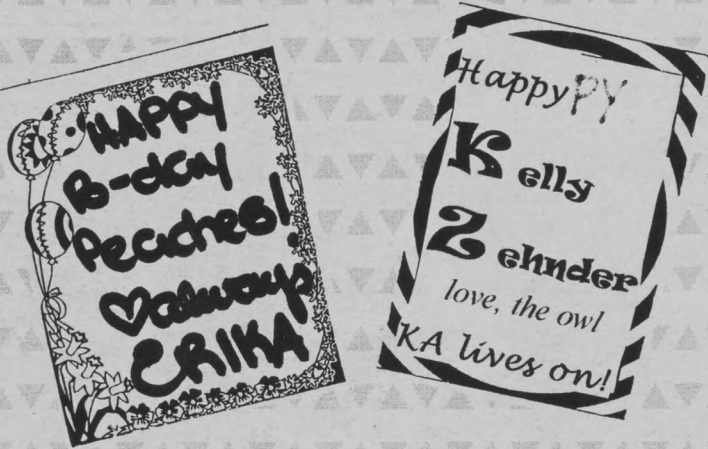 HAPPY
B-day
Peaches!
♡always
ERIKA
Happy PY
Kelly
Zehnder
love, the owl
KA lives on!